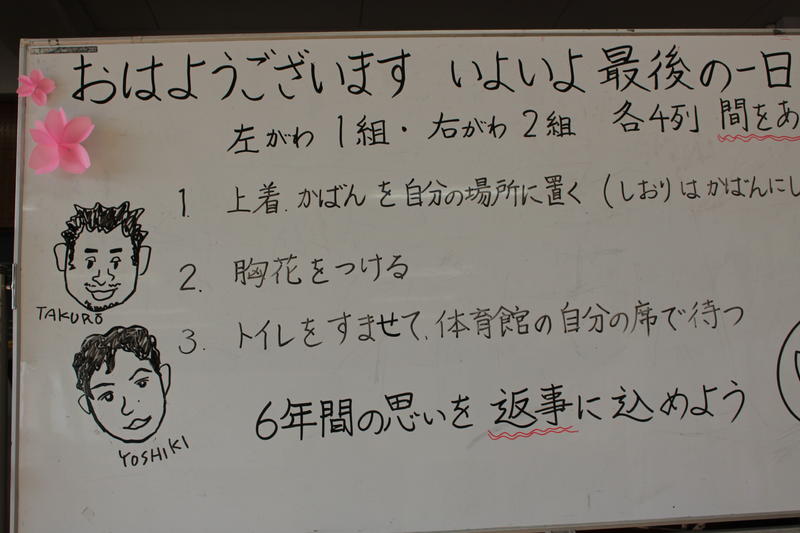 おはようございます いよいよ最後の一日
左がわ 1組・右がわ 2組 各4列 間をあ
1. 上着、かばんを自分の場所に置く（しおりはかばんにし
2. 胸花をつける
3. トイレをすませて、体育館の自分の席で待つ
6年間の思いを返事に込めよう
TAKURO
YOSHIKI